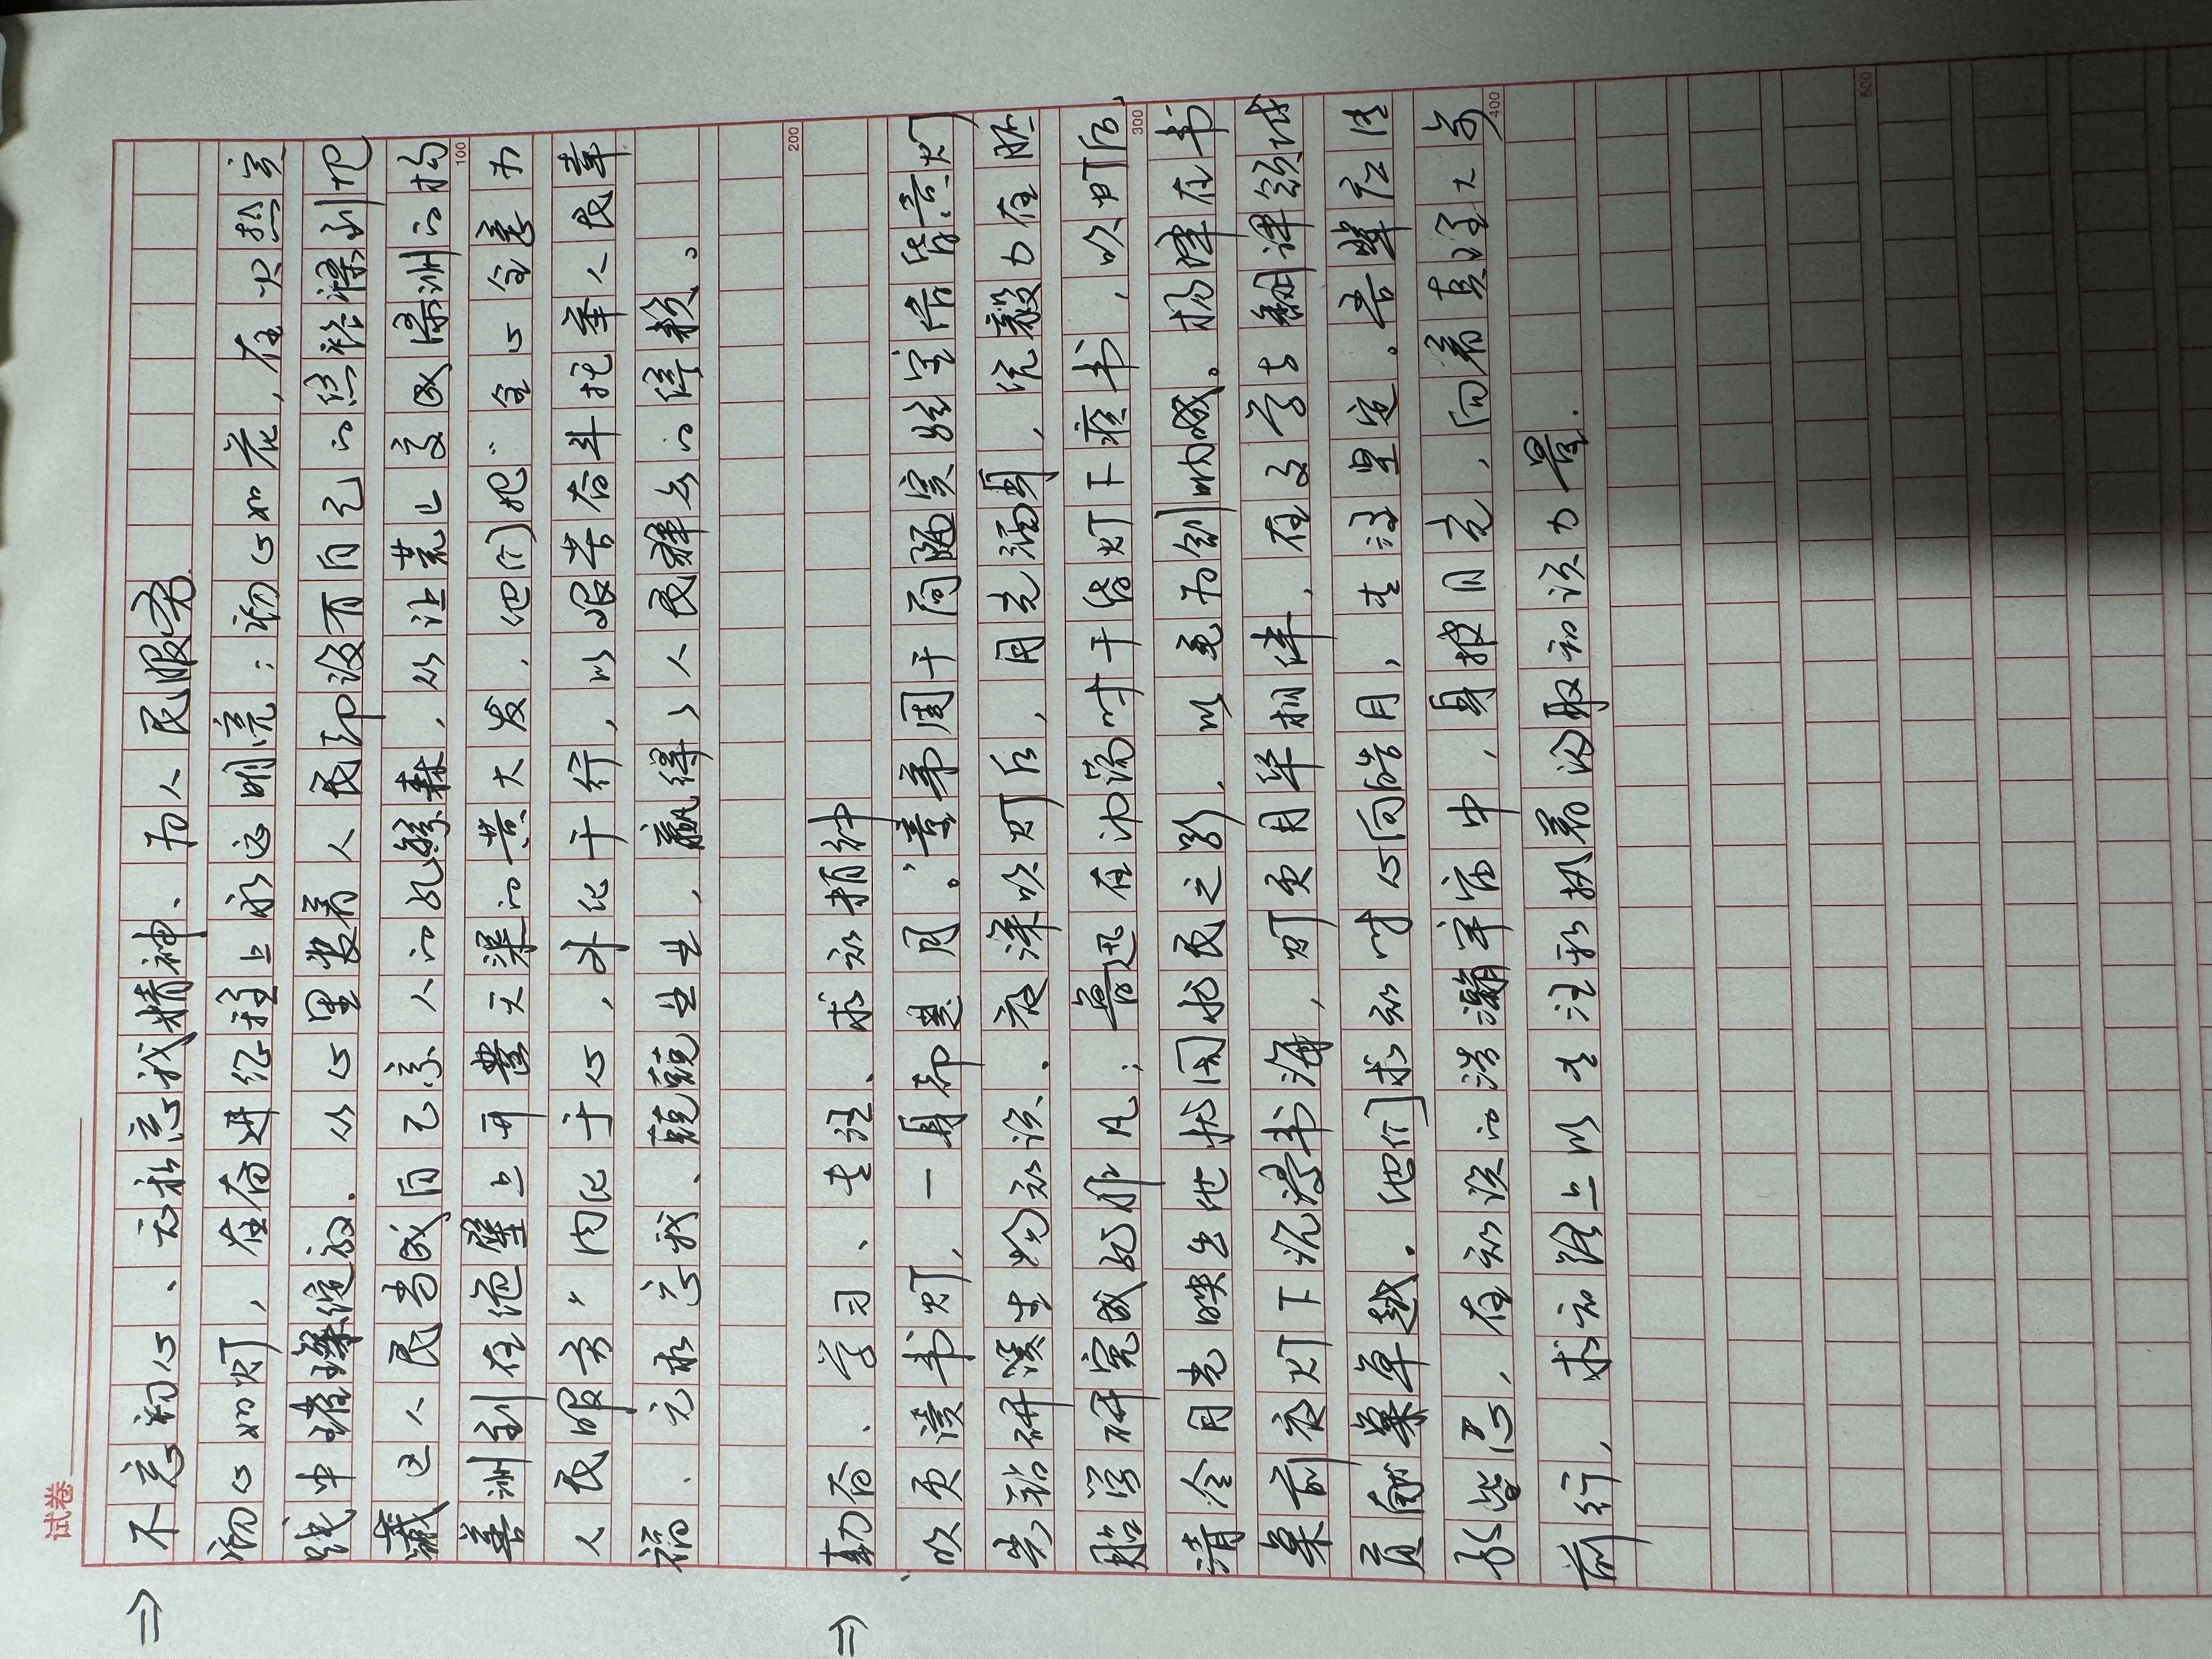 试卷
⇒ 不忘初心、无私忘我精神、为人民服务.
初心如灯，在奋进征程上永远明亮；初心如花，在火热实
践中璀璨绽放. 从心里装着人民却没有自己的焦裕禄到把
藏区人民当成自己亲人的孔繁森，从让荒山变成绿洲的杨
100
善洲到在绝壁上开凿天渠的黄大发，他们把“全心全意为
人民服务”内化于心，外化于行，以艰苦奋斗托举人民幸
福、无私忘我、兢兢业业，赢得了人民群众的信赖。
200
⇒ 勤奋、学习、专注、求知精神
吹灭读书灯，一身都是月。童第周于简陋实验室借昏黄灯
光钻研生物知识. 夜深吹灯后，月光洒身，凭毅力在胚
胎学研究成就非凡；鲁迅在动荡时于昏灯下疾书，吹灯后，
300
清冷月光映出他忧国忧民之影. 以笔为剑呐喊。杨绛在书
桌前夜灯下沉浸书海，灯灭月华相伴，在文学与翻译领域
贡献卓越. 他们求知时心向皓月，专注坚定. 吾辈应传
承此志，在知识的浩瀚宇宙中，身披月光，向着真理大步
400
前行，求知路上以专注和执着汲取知识力量.
500